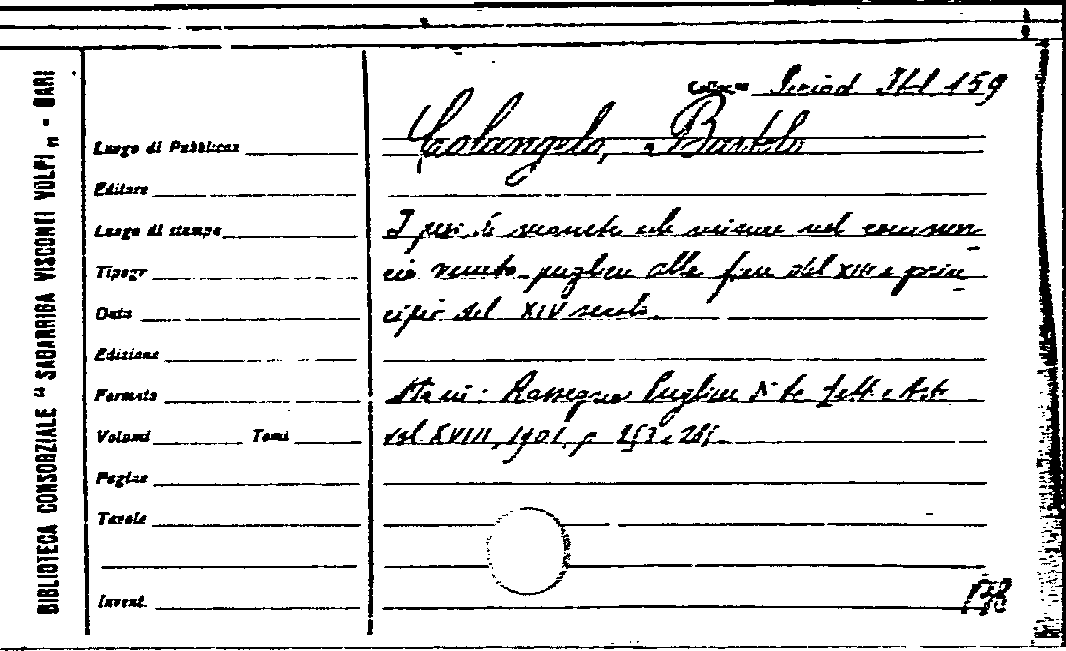 BIBLIOTECA CONSORZIALE "SAGARRIGA VISCONTI VOLPI" - BARI
Colloc. Period Ital 159
Colangelo, Bartolo
Luogo di Pubblicaz
Editore
Luogo di stampa
Tipogr
Data
Edizione
Formato
Volumi Tomi
Pagine
Tavole
Invent.
I pesi, le monete e le misure nel commer-
cio veneto-pugliese alla fine del XIII e prin-
cipio del XIV secolo.
Sta in: Rassegna Pugliese Lett e Arti
vol XVIII, 1901, p 253 e 265